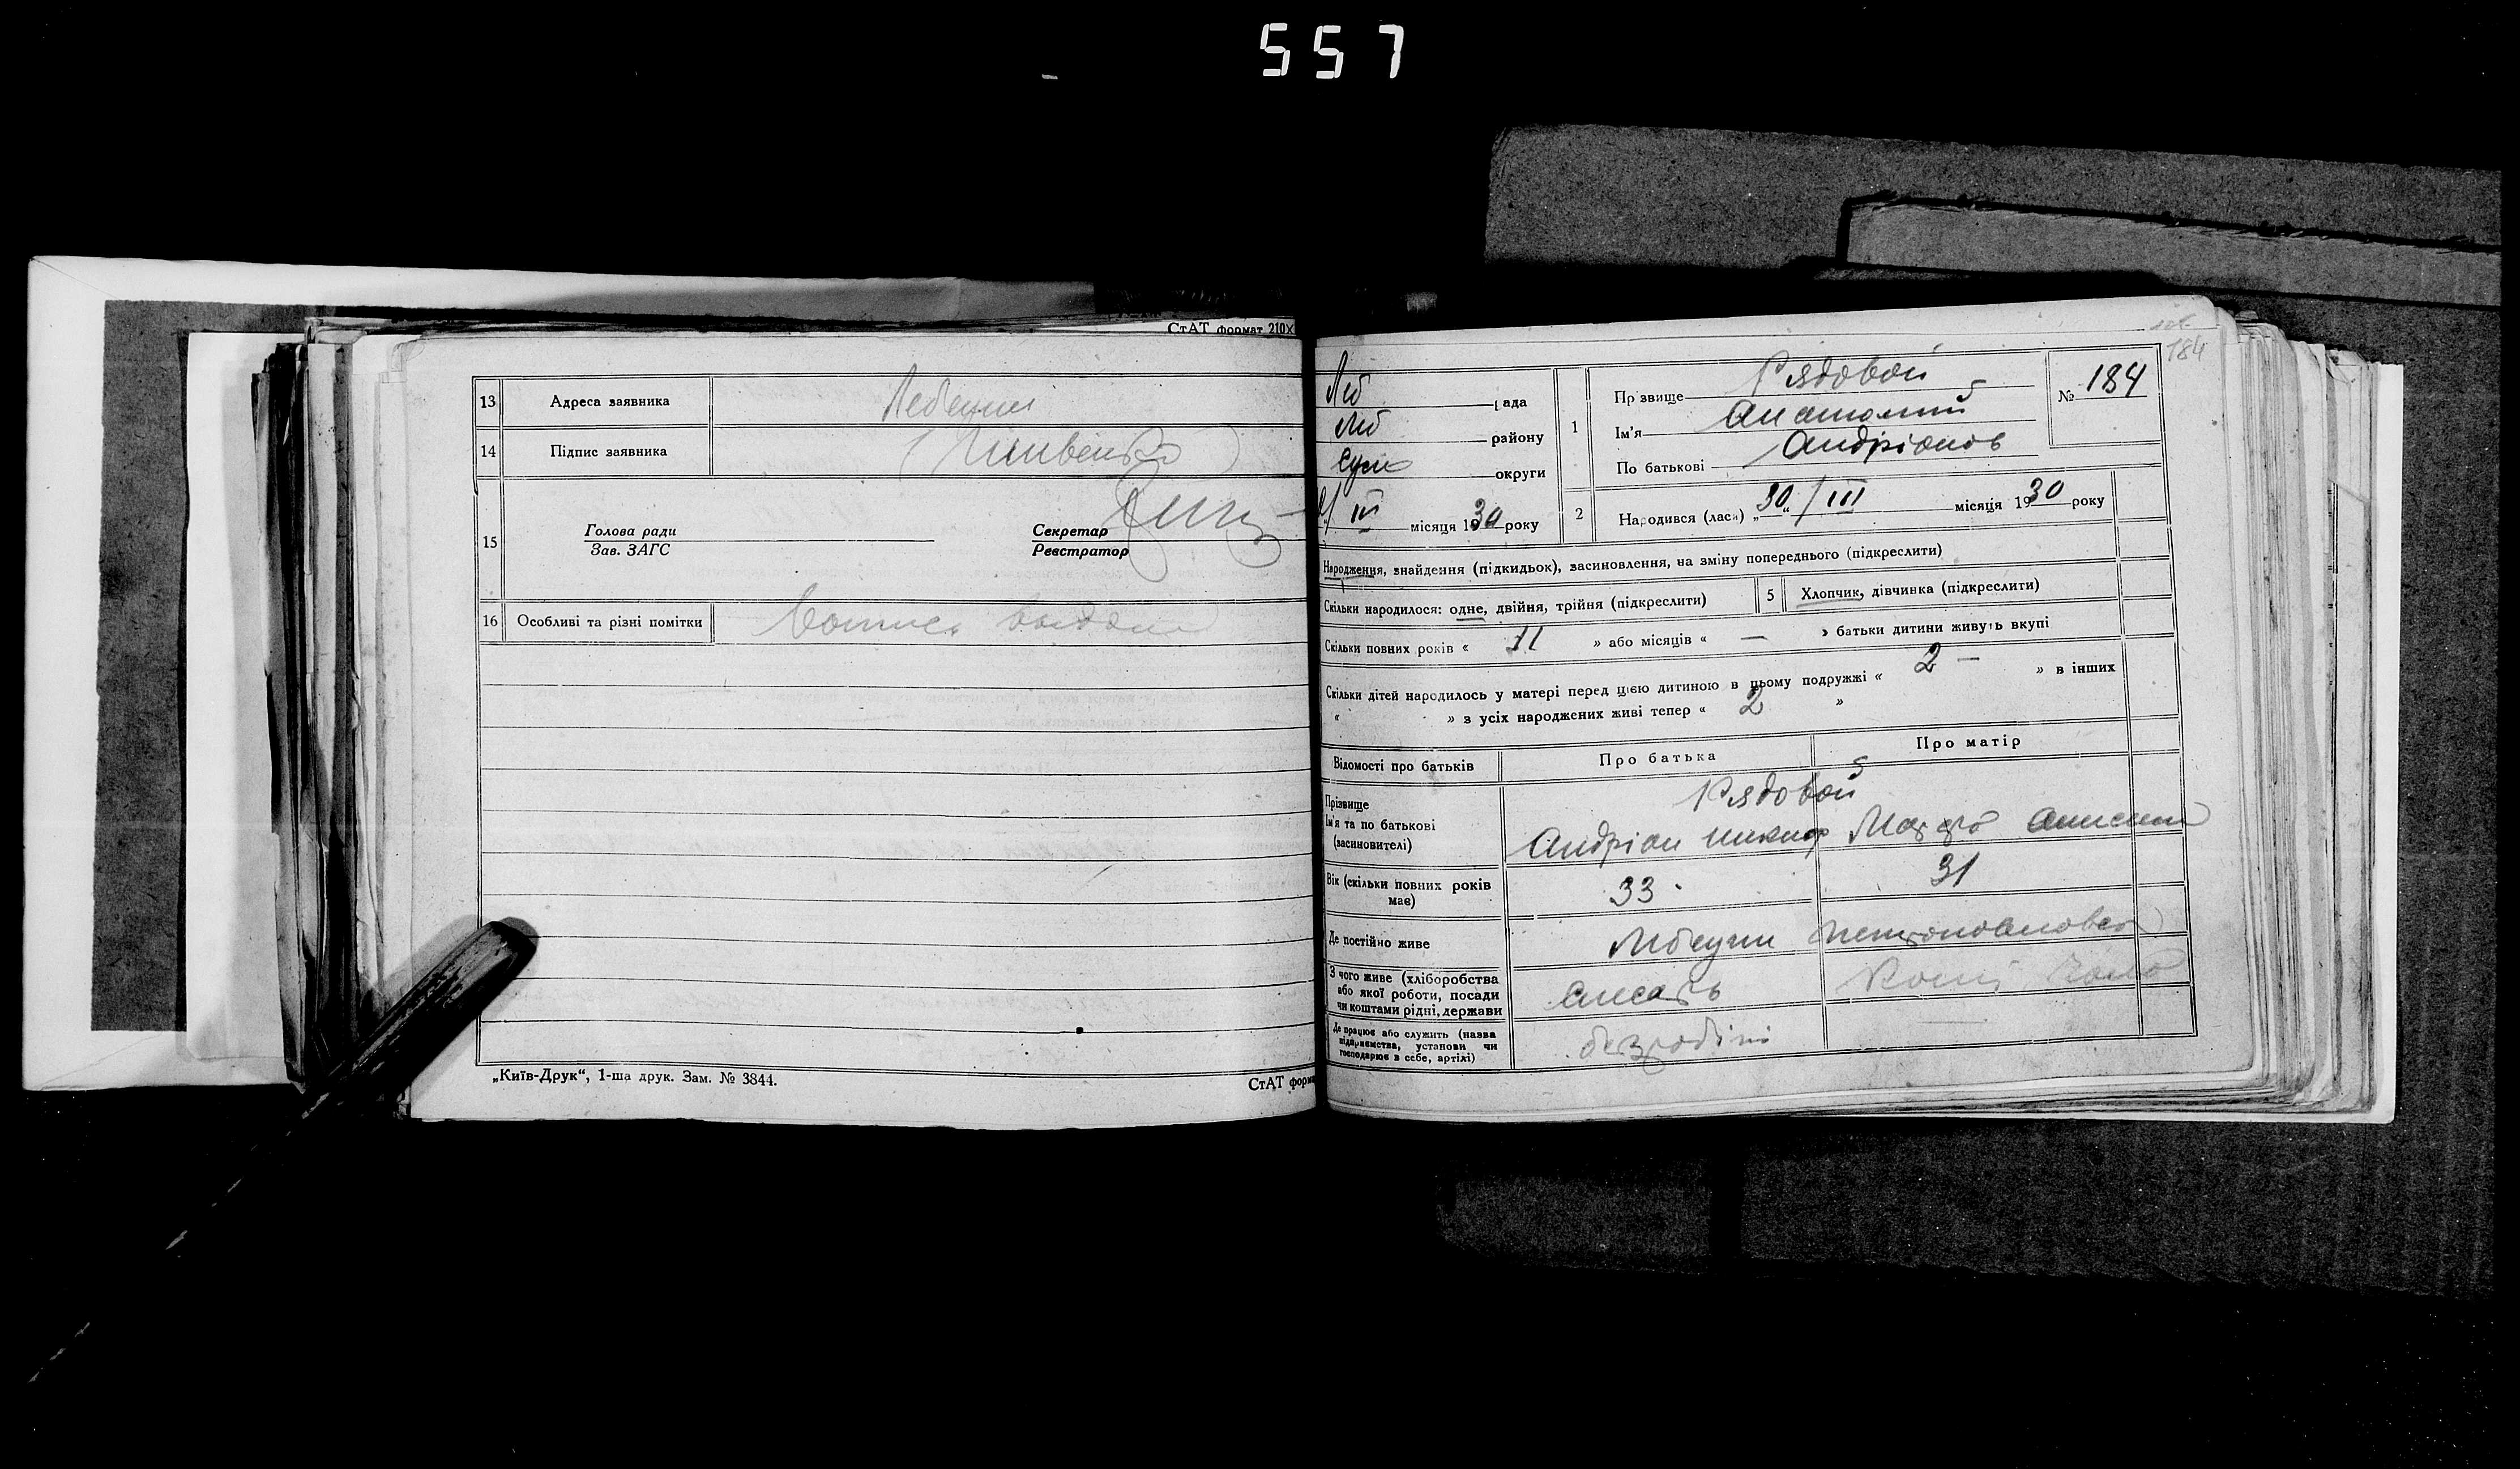 557
СтАТ формат 210х
13 Адреса заявника Лебедин
14 Підпис заявника
15 Голова ради
Зав. ЗАГС
Секретар
Реєстратор
16 Особливі та різні помітки
„Київ-Друк“, 1-ша друк. Зам. № 3844.
СтАТ форма
184
Леб рада
Леб району
Сум округи
III місяця 1930 року
1 Прізвище Рядовой
Ім'я Анатолий
По батькові Андріанов
№ 184
2 Народився (лась) „30“ / III місяця 1930 року
Народження, знайдення (підкидьок), засиновлення, на зміну попереднього (підкреслити)
Скільки народилося: одне, двійня, трійня (підкреслити)
5 Хлопчик, дівчинка (підкреслити)
Скільки повних років « 11 » або місяців « — » батьки дитини живуть вкупі
Скільки дітей народилось у матері перед цією дитиною в цьому подружжі « 2 — » в інших
« » з усіх народжених живі тепер « 2 »
Відомості про батьків Про батька Про матір
Прізвище Рядовой
Ім'я та по батькові
(засиновителі) Андріан Никиф
Вік (скільки повних років має) 33 31
Де постійно живе
З чого живе (хліборобства
або якої роботи, посади
чи коштами рідні, держави слесарь
Де працює або служить (назва
підприємства, установи чи
господарює в себе, артілі) безробітн